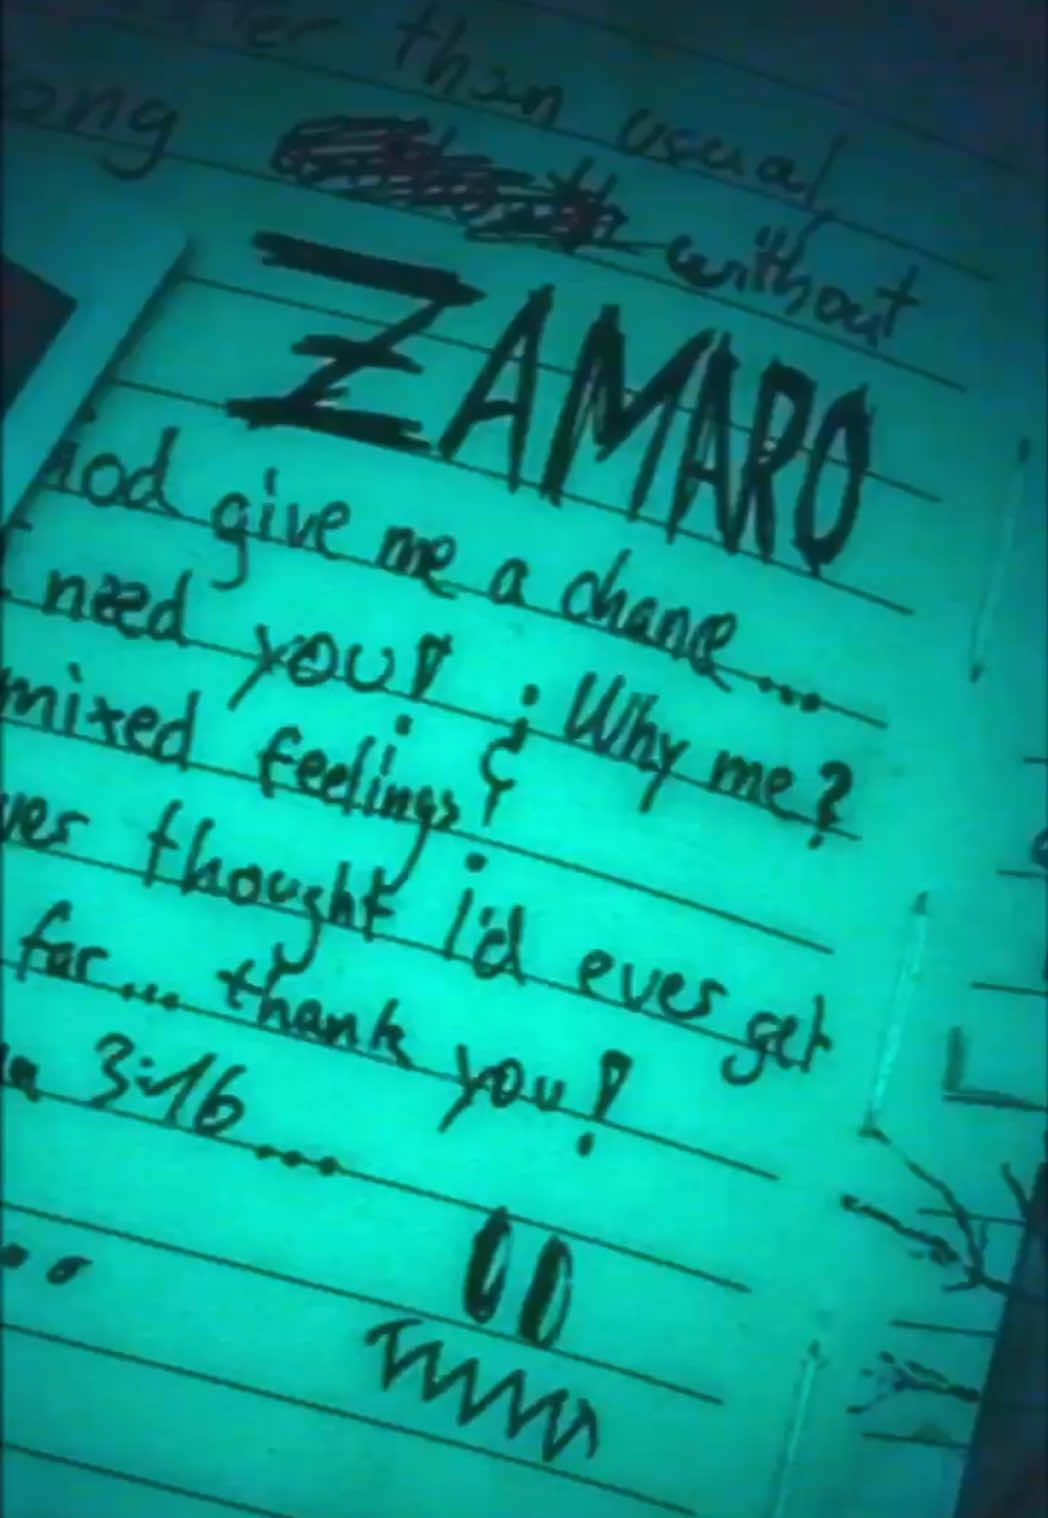 than usual
without
ZAMARO
give me a chance...
need you! ; Why me?
mixed feelings ;
thought i'd ever get
far... thank you!
3:16...